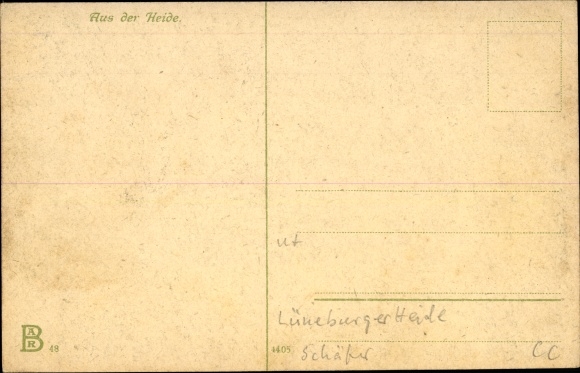 Aus der Heide.
ut
Lüneburger Heide
4405
Schäfer
CC
BAR 48